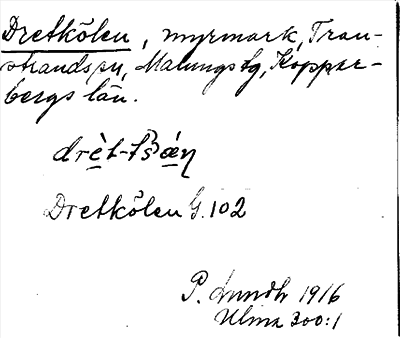 Dretkölen, myrmark, Tran-
strands sn, Malungs tg, Koppar-
bergs län.
Dretkölen G. 102
P. Lundh 1916
Ulma 300:1